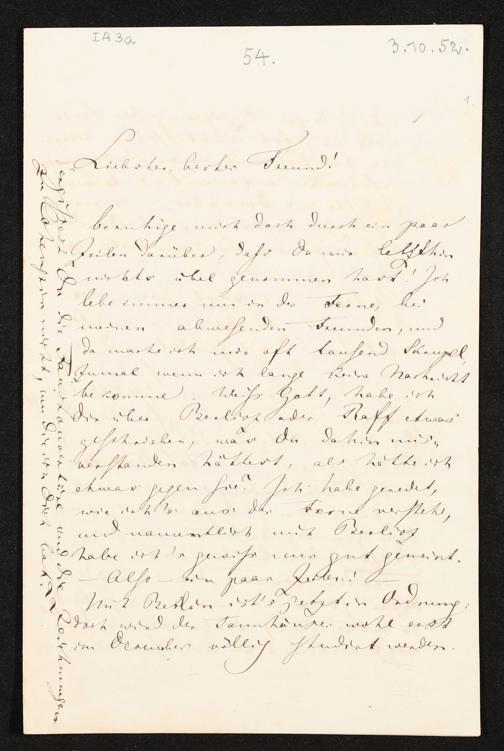 IA3a
54.
3.10.52.
1.
Liebster, bester Freund!
beruhige mich doch durch ein paar
Zeilen darüber, daß du mir letzthin
nichts übel genommen hast! Ich
lebe immer nur in der Ferne, bei
meinen abwesenden Freunden, und
da mache ich mir oft tausend Skrupel,
zumal wenn ich lange keine Nachricht
bekomme. Weiß Gott, habe ich
dir über Berlioz oder Raff etwas
geschrieben, was du dahin miß-
verstanden hättest, als hätte ich
etwas gegen sie? Ich habe geredet,
wie ich's aus der Ferne verstehe,
und namentlich mit Berlioz
habe ich's gewiß nur gut gemeint.
— Also — ein paar Zeilen! —
Mit Berlin ist's jetzt in Ordnung:
doch wird der Tannhäuser wohl erst
im December völlig studirt werden.
Vergißest du die Faustouvertüre und die Zeichnungen
zu Lohengrin nicht, um die ich dich bat?